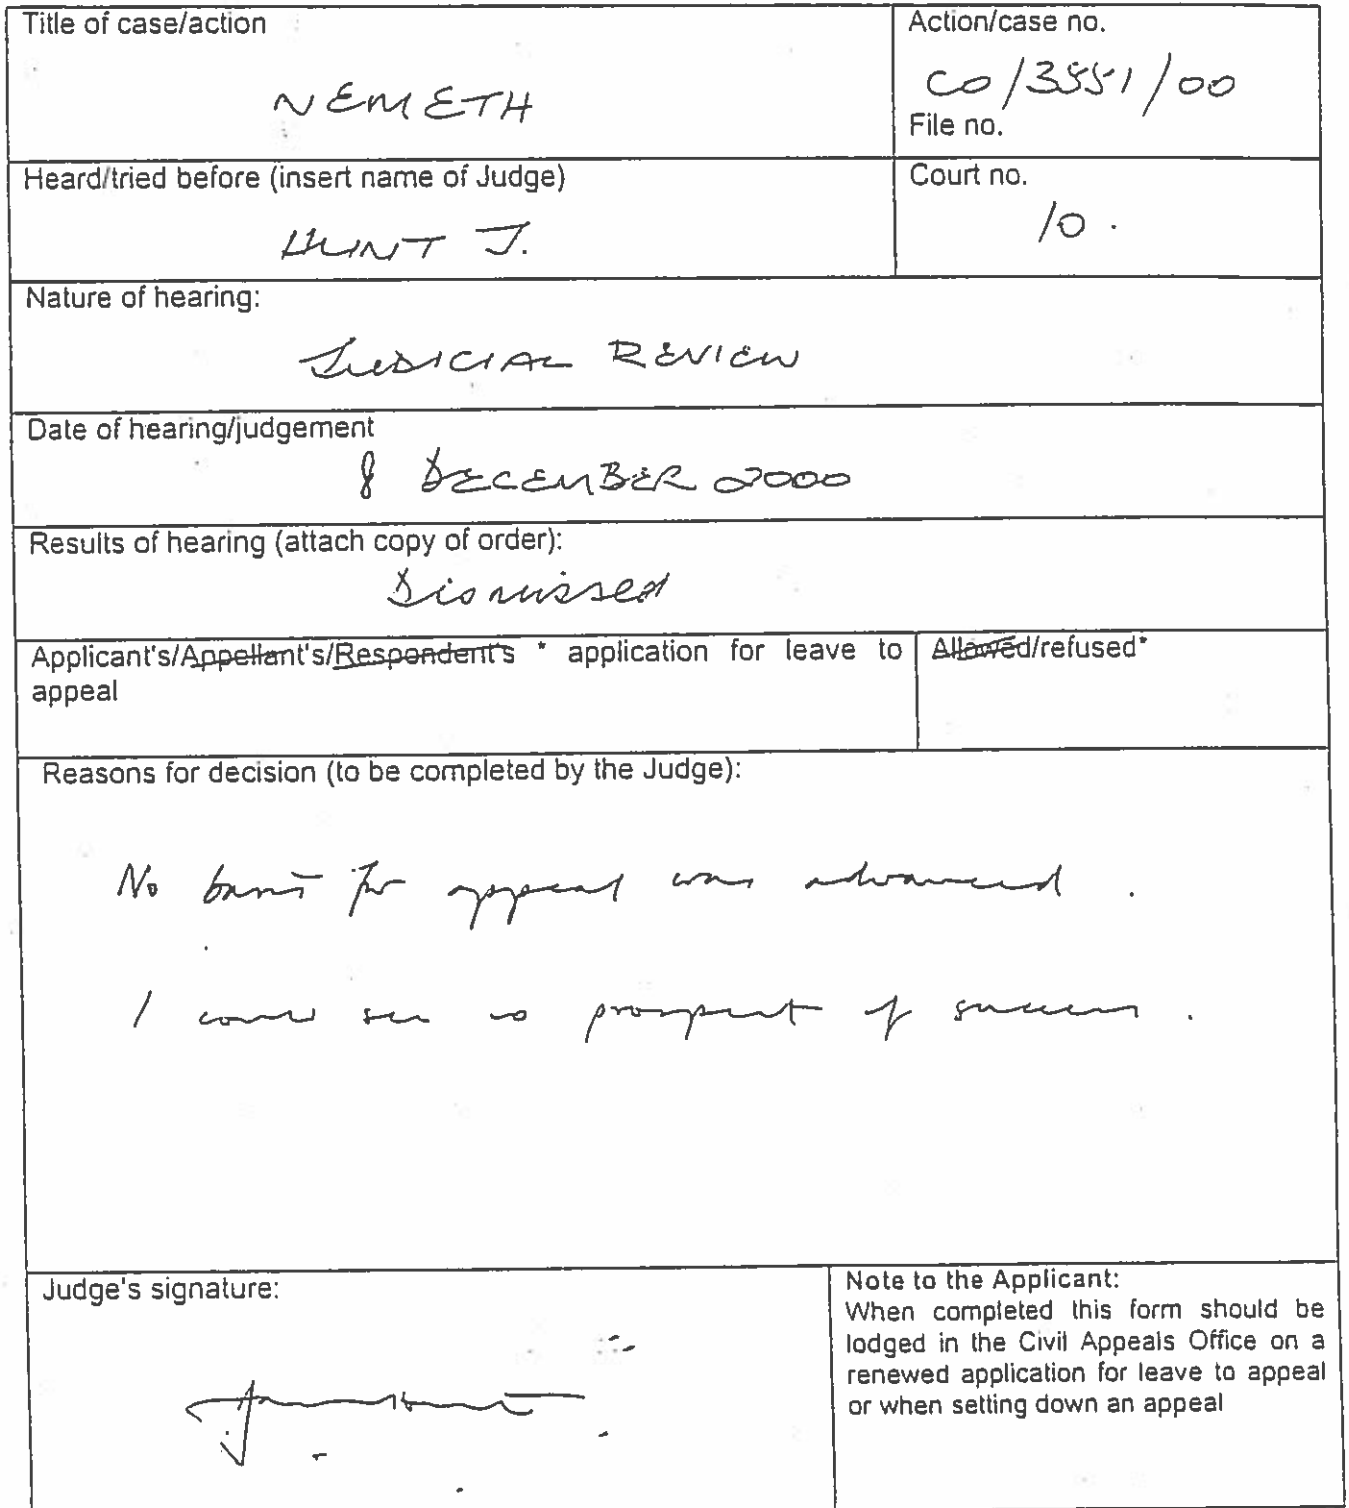 Title of case/action
NEMETH
Action/case no.
CO/3551/00
File no.
Heard/tried before (insert name of Judge)
HUNT J.
Court no.
10.
Nature of hearing:
JUDICIAL REVIEW
Date of hearing/judgement
8 DECEMBER 2000
Results of hearing (attach copy of order):
Dismissed
Applicant's/Appellant's/Respondent's * application for leave to
appeal
Allowed/refused*
Reasons for decision (to be completed by the Judge):
No basis for appeal was advanced.
I could see no prospect of success.
Judge's signature:
Note to the Applicant:
When completed this form should be
lodged in the Civil Appeals Office on a
renewed application for leave to appeal
or when setting down an appeal